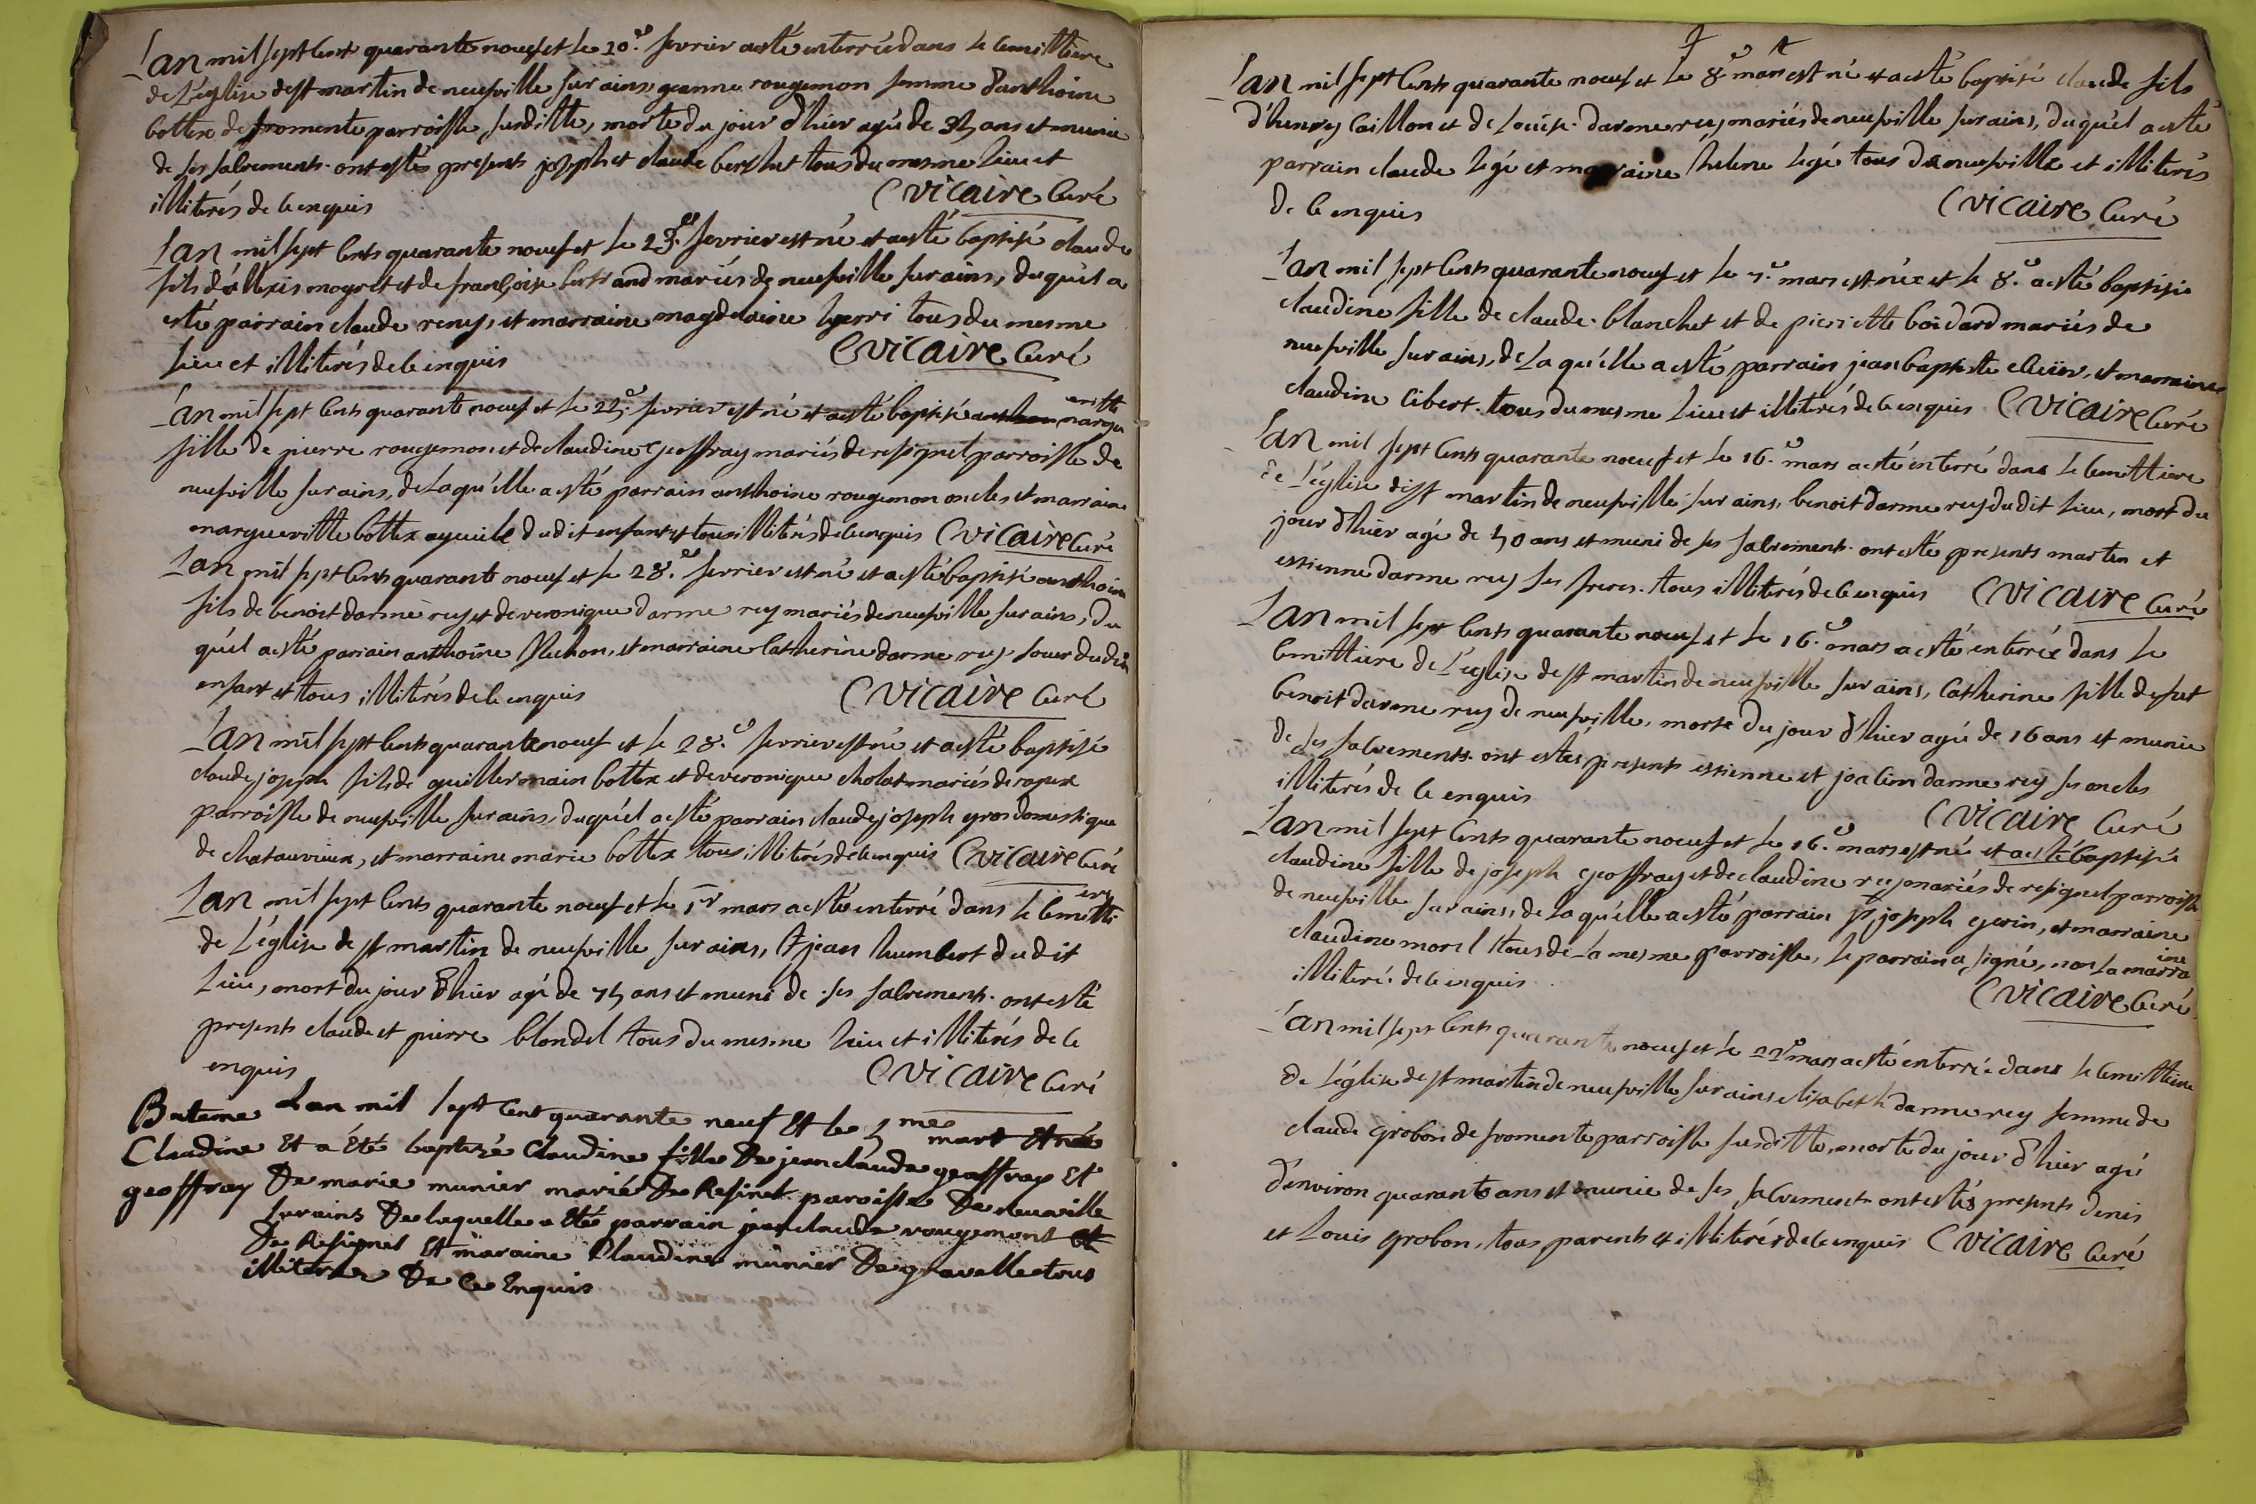 Lan mil sept cent quarante noeuf et le 20.e fevrier a esté enterrée dans le cemittiere
de L'eglise de st martin de neufville sur ains, jeanne rougemon femme d'anthoine
bottex de fromente parroisse susditte, morte du jour d'hier agée de 35 ans et munie
de ses sacrements. ont estés presents joseph et claude berthet tous du mesme lieu et
illiterés de ce enquis C vicaire Curé
Lan mil sept cents quarante noeuf et le 23.e fevrier est né et a esté baptisé claude
fils d'allexis mogret et de françoise mariés de neufville sur ains, du quel a
esté parrain claude reney, et marraine magdelaine tous du mesme
lieu et illiterés de ce enquis C vicaire Curé
Lan mil sept cents quarante noeuf et le 25.e fevrier est né et a esté baptisé margueritte
fille de pierre rougemon et de claudine geoffray mariés de resignel parroisse de
neufville sur ains, de la qu'elle a esté parrain anthoine rougemon oncles et marraine
margueritte bottex ayeule du dit enfant et tous illiterés de ce enquis C vicaire Curé
Lan mil sept cents quarante noeuf et le 28.e fevrier est né et a esté baptisé anthoine
fils de benoit darme rey et de veronique darme rey mariés de neufville sur ains, du
quel a esté parrain anthoine et marraine catherine darme rey soeur du dit
enfant et tous illiterés de ce enquis C vicaire Curé
Lan mil sept cents quarante noeuf et le 28.e fevrier est né et a esté baptisé
claude joseph fils de guillermain bottex et de veronique cholat mariés de rapux
parroisse de neufville sur ains, du quel a esté parrain claude joseph gros domestique
de chatauvieux, et marraine marie bottex tous illiterés de ce enquis C vicaire Curé
Lan mil sept cents quarante noeuf et le 1er mars a esté enterré dans le cemittiere
de L'église de st martin de neufville sur ains, jean humbert du dit
lieu, mort du jour d'hier agé de 75 ans et muni de ses sacrements. ont esté
presents claude et pierre blondel tous du mesme lieu et illiterés de ce
enquis C vicaire Curé
Bateme Lan mil sept cent quarante neuf Et le 5 me mars Et née
Claudine Et a Été baptizé Claudine fille De jean claude geoffray Et
geoffray De marie munier marié De Resinel paroisse De neuville
sur ains De laquelle a Eté parrain jean claude rougemont et
De Resignel Et maraine Claudine munier De gravelle tous
illiterer De Ce Enquis
Lan mil sept cents quarante noeuf et le 8.e mars est né et a esté baptisé claude fils
d'henry caillon et de Louise darme rey mariés de neufville sur ains, du quel a esté
parrain claude legé et marraine helene legé tous de neufville et illiterés
de ce enquis C vicaire Curé
Lan mil sept cents quarante noeuf et le 7.e mars est née et le 8.e a esté baptisée
claudine fille de claude blanchet et de pierrette boidard mariés de
neufville sur ains, de La qu'elle a esté parrain jean baptiste et marraine
claudine Cibert. tous du mesme lieu et illiterés de ce enquis C vicaire Curé
Lan mil sept cents quarante noeuf et le 16.e mars a esté enterré dans le cemittiere
de L'église de st martin de neufville sur ains, benoit darme rey du dit lieu, mort du
jour d'hier agé de 50 ans et muni de ses sacrements. ont esté presents martin et
estienne darme rey ses freres. tous illiterés de ce enquis C vicaire Curé
Lan mil sept cents quarante noeuf et le 16.e mars a esté enterrée dans le
cemittiere de L'eglise de st martin de neufville sur ains, catherine fille de feut
benoit darme rey de neufville, morte du jour d'hier agée de 16 ans et munie
de ses sacrements. ont estés presents estienne et joachim darme rey ses oncles
illiterés de ce enquis C vicaire Curé
Lan mil sept cents quarante noeuf et le 16.e mars est né et a esté baptisée
claudine fille de joseph geoffray et de claudine rey mariés de resignel parroisse
de neufville sur ains, de la qu'elle a esté parrain joseph gerin, et marraine
claudine morel tous de la mesme parroisse, le parrain a signé, non la marraine
illiteré de ce enquis C vicaire Curé
Lan mil sept cents quarante noeuf et le 22.e mars a esté enterrée dans le cemittiere
de L'église de st martin de neufville sur ains elisabeth darme rey femme de
claude grobon de fromente parroisse susditte, morte du jour d'hier agé
d'environ quarante ans et munie de ses sacrements ont estés presents denis
et Louis grobon, tous parents et illiterés de ce enquis C vicaire Curé